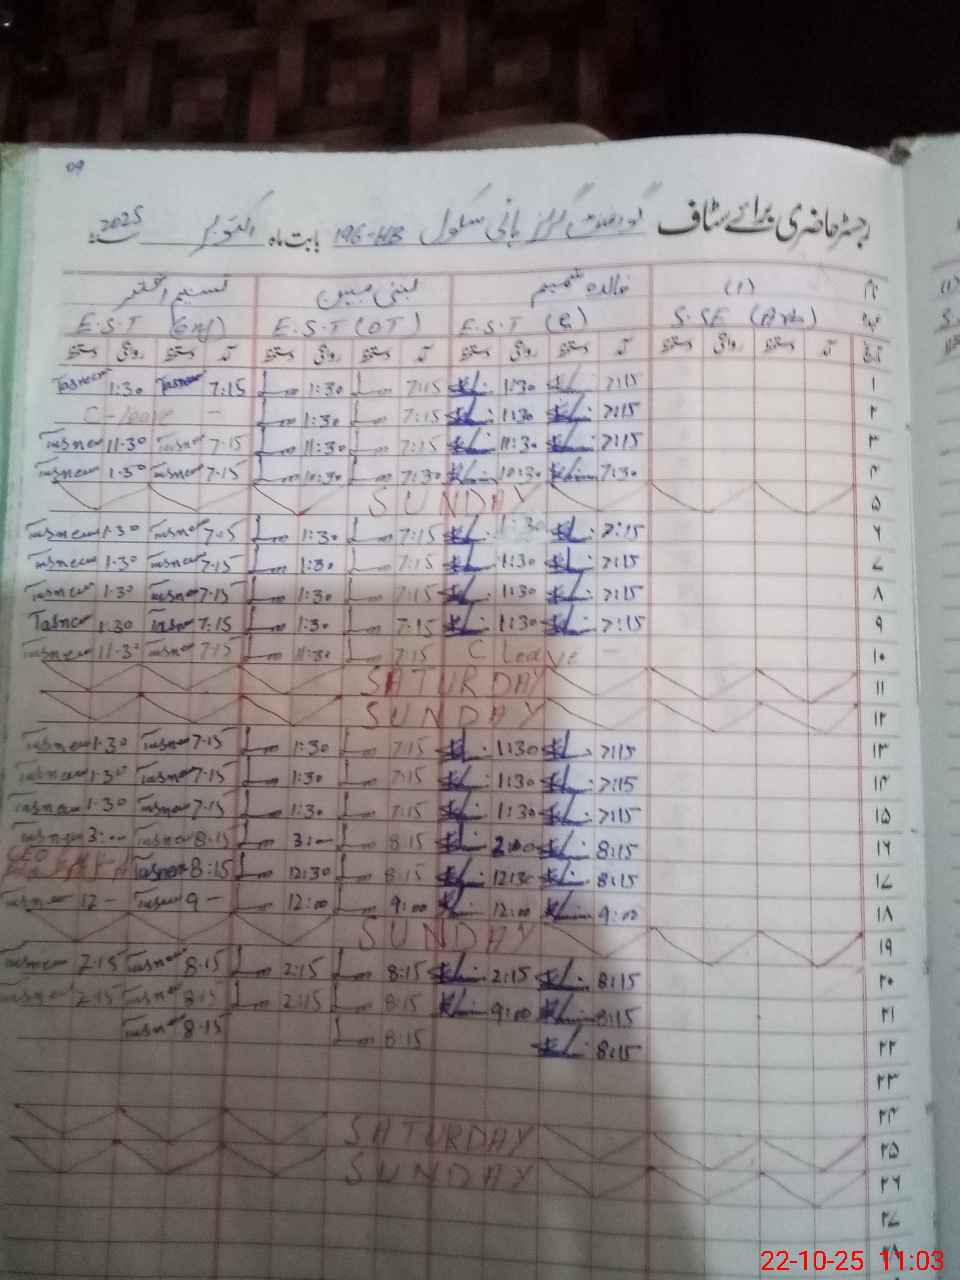 09
رجسٹر حاضری برائے سٹاف گورنمنٹ گرلز ہائی سکول 196-HB بابت ماہ اکتوبر 2025
نام (1) خالدہ شمیم لبنیٰ مبین تسنیم اختر
عہدہ S.SE (Arb) E.S.T (G) E.S.T (DT) E.S.T (Eng)
تاریخ آمد دستخط روانگی دستخط آمد دستخط روانگی دستخط آمد دستخط روانگی دستخط آمد دستخط روانگی دستخط
۱ 7:15 1:30 7:15 1:30 7:15 Tasneem 1:30 Tasneem
۲ 7:15 1:30 7:15 1:30 C-leave –
۳ 7:15 11:30 7:15 11:30 7.15 Tasneem 11.30 Tasneem
۴ 7:30 10:30 7:30 10:30 7.15 Tasneem 1.30 Tasneem
۵ SUNDAY
۶ 7:15 1:30 7:15 1:30 7.15 Tasneem 1.30 Tasneem
۷ 7:15 1:30 7:15 1:30 7.15 Tasneem 1.30 Tasneem
۸ 7:15 1:30 7:15 1:30 7.15 Tasneem 1.30 Tasneem
۹ 7:15 1:30 7:15 1:30 7.15 Tasneem 1.30 Tasneem
۱۰ C leave – 7:15 11:30 7.15 Tasneem 11.30 Tasneem
۱۱ SATURDAY
۱۲ SUNDAY
۱۳ 7:15 1:30 7:15 1:30 7.15 Tasneem 1.30 Tasneem
۱۴ 7:15 1:30 7:15 1:30 7.15 Tasneem 1.30 Tasneem
۱۵ 7:15 1:30 7:15 1:30 7.15 Tasneem 1.30 Tasneem
۱۶ 8:15 2:00 8:15 3:– 8.15 Tasneem 3:– Tasneem
۱۷ 8:15 12:30 8:15 12:30 8:15 Tasneem CEO
۱۸ 9:00 12:00 9:00 12:00 9 – Tasneem 12 – Tasneem
۱۹ SUNDAY
۲۰ 8:15 2:15 8:15 2:15 8.15 Tasneem 2.15 Tasneem
۲۱ 8:15 9:00 8:15 2:15 8:15 Tasneem 2:15 Tasneem
۲۲ 8:15 8:15 8.15 Tasneem
۲۳
۲۴
۲۵ SATURDAY
۲۶ SUNDAY
۲۷
۲۸
22-10-25 11:03